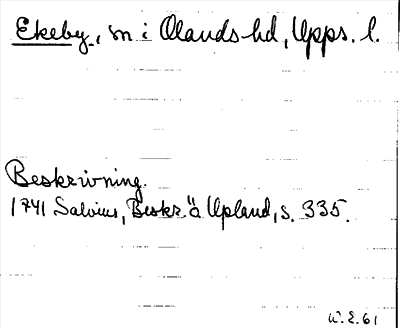 Ekeby, sn i Olands hd, Upps. l.
Beskrivning.
1741 Salvius, Beskr. ö. Upland, s. 335.
W.E.61